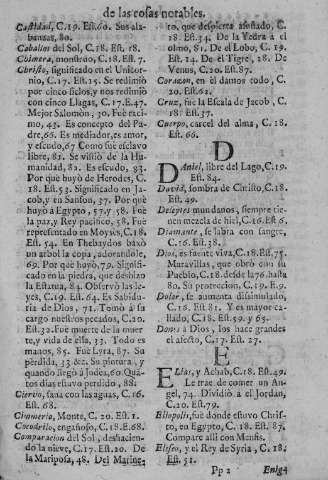 de las cosas notables.
Castidad, C.19. Est.60. Sus ala-
banzas, 80.
Caballos del Sol, C.18. Est. 18.
Chimera, monstruo, C.18. Est. 7.
Christo, significado en el Unicor-
nio, C.17. Est.15. Se redimiò
por cinco siclos, y nos redimiò
con cinco Llagas, C.17. E.47.
Mejor Salomòn, 30. Fue raci-
mo, 45. Es concepto del Pa-
dre, 66. Es mediador, es amor,
y escudo, 67 Como fue esclavo
libre, 81. Se vistiò de la Hu-
manidad, 82. Es escudo, 83.
Por què huyò de Herodes, C.
18. Est. 53. Significado en Ja-
cob, y en Sanson, 37. Por què
huyò à Egypto, 57, y 58. Fue
la paz, y Rey pacifico, 58. Fue
representado en Moysès, C.18.
Est. 54. En Thebaydos baxò
un arbol la copa, adorandole,
69. Por què huyo, 79. Signifi-
cado en la piedra, que deshizo
la Estatua, 84. Observò las le-
yes, C.19. Est. 64. Es Sabidu-
ria de Dios, 71. Tomò à su
cargo nuestros pecados, C.20.
Est.32. Fue muerte de la muer-
te, y vida de ella, 33. Todo es
manos, 85. Fue Lyra, 87. Su
pèrdida, 33 &c. Su pintura, y
quando llegò à Judea, 60. Quã-
tos dias estuvo perdido, 88.
Ciervo, sana con las aguas, C.16.
Est. 68.
Chimeria, Monte, C.20. Est. 1.
Cocodrilo, engañoso, C.18. E.68.
Comparacion del Sol, deshacien-
do la nieve, C.17. Est.20. De
la Mariposa, 48. Del Marine-
ro, que despierta asustado, C.
18. Est. 24. De la Yedra à el
olmo, 81. De el Lobo, C.19.
Est. 14. De el Tigre, 28. De
Venus, C.20. Est. 87.
Corazon, en èl damos todo, C.
20. Est. 62.
Cruz, fue la Escala de Jacob, C.
18. Est. 37.
Cuerpo, carcel del alma, C.18.
Est. 66.
D
Daniel, libre del Lago, C.19.
Est. 84.
David, sombra de Christo, C.18.
Est. 49.
Deleytes mundanos, siempre tie-
nen mezcla de hiel, C.16. Est. 6.
Diamante, se labra con sangre,
C.16. Est. 38.
Dios, es fuente viva, C.18. Est. 75.
Maravillas, que obrò con su
Pueblo, C.18. desde la 76. hasta
80. Su proteccion, C.19. E.9.
Dolor, se aumenta disimulado,
C.16. Est 81. Y es mayor ca-
llado, C.18. Est. 59. y 65.
Dones à Dios, los hace grandes
el afecto, C.17. Est. 27.
E
Elias, y Achab, C.18. Est. 49.
Le trae de comer un An-
gel, 74. Dividiò à el Jordan,
C.20. Est. 79.
Eliopolis, fue donde estuvo Chris-
to, en Egypto, C.18. Est. 87.
Compare assi con Menfis.
Eliseo, y el Rey de Syria, C.18.
Est. 51.
Pp 2
Enig-